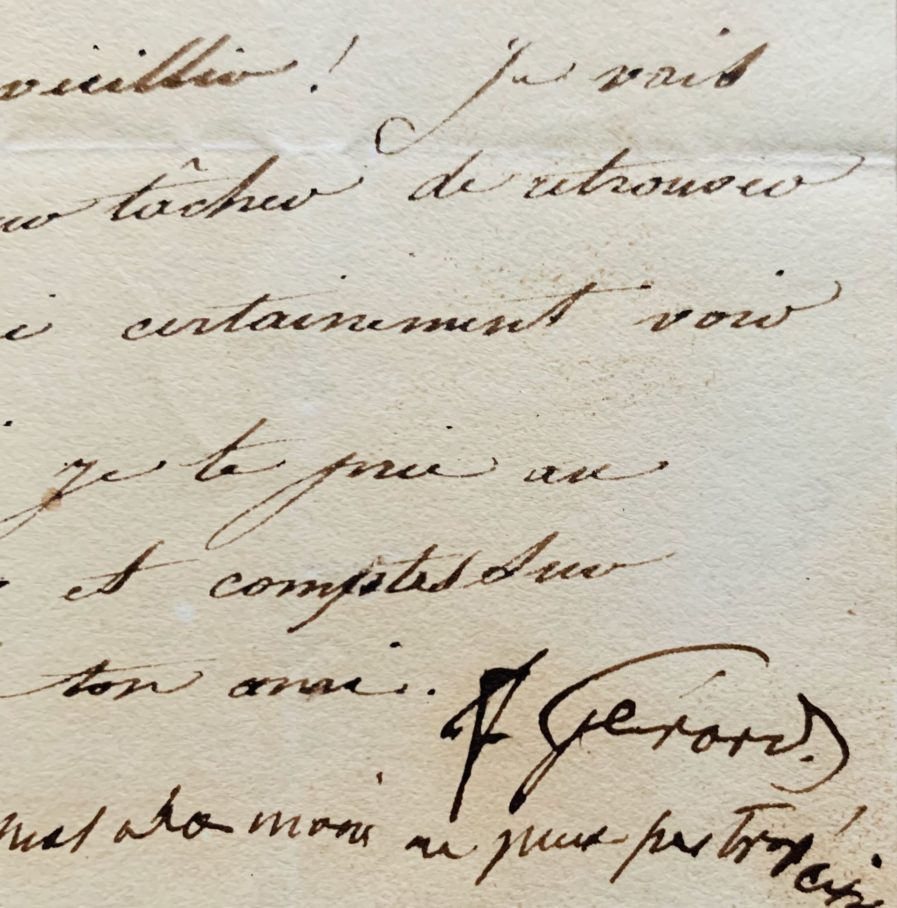 vieillir ! Je vais
tâcher de retrouver
certainement voir
je te prie au
et comptes sur
ton ami. Gérard.
main ne peux pas trop